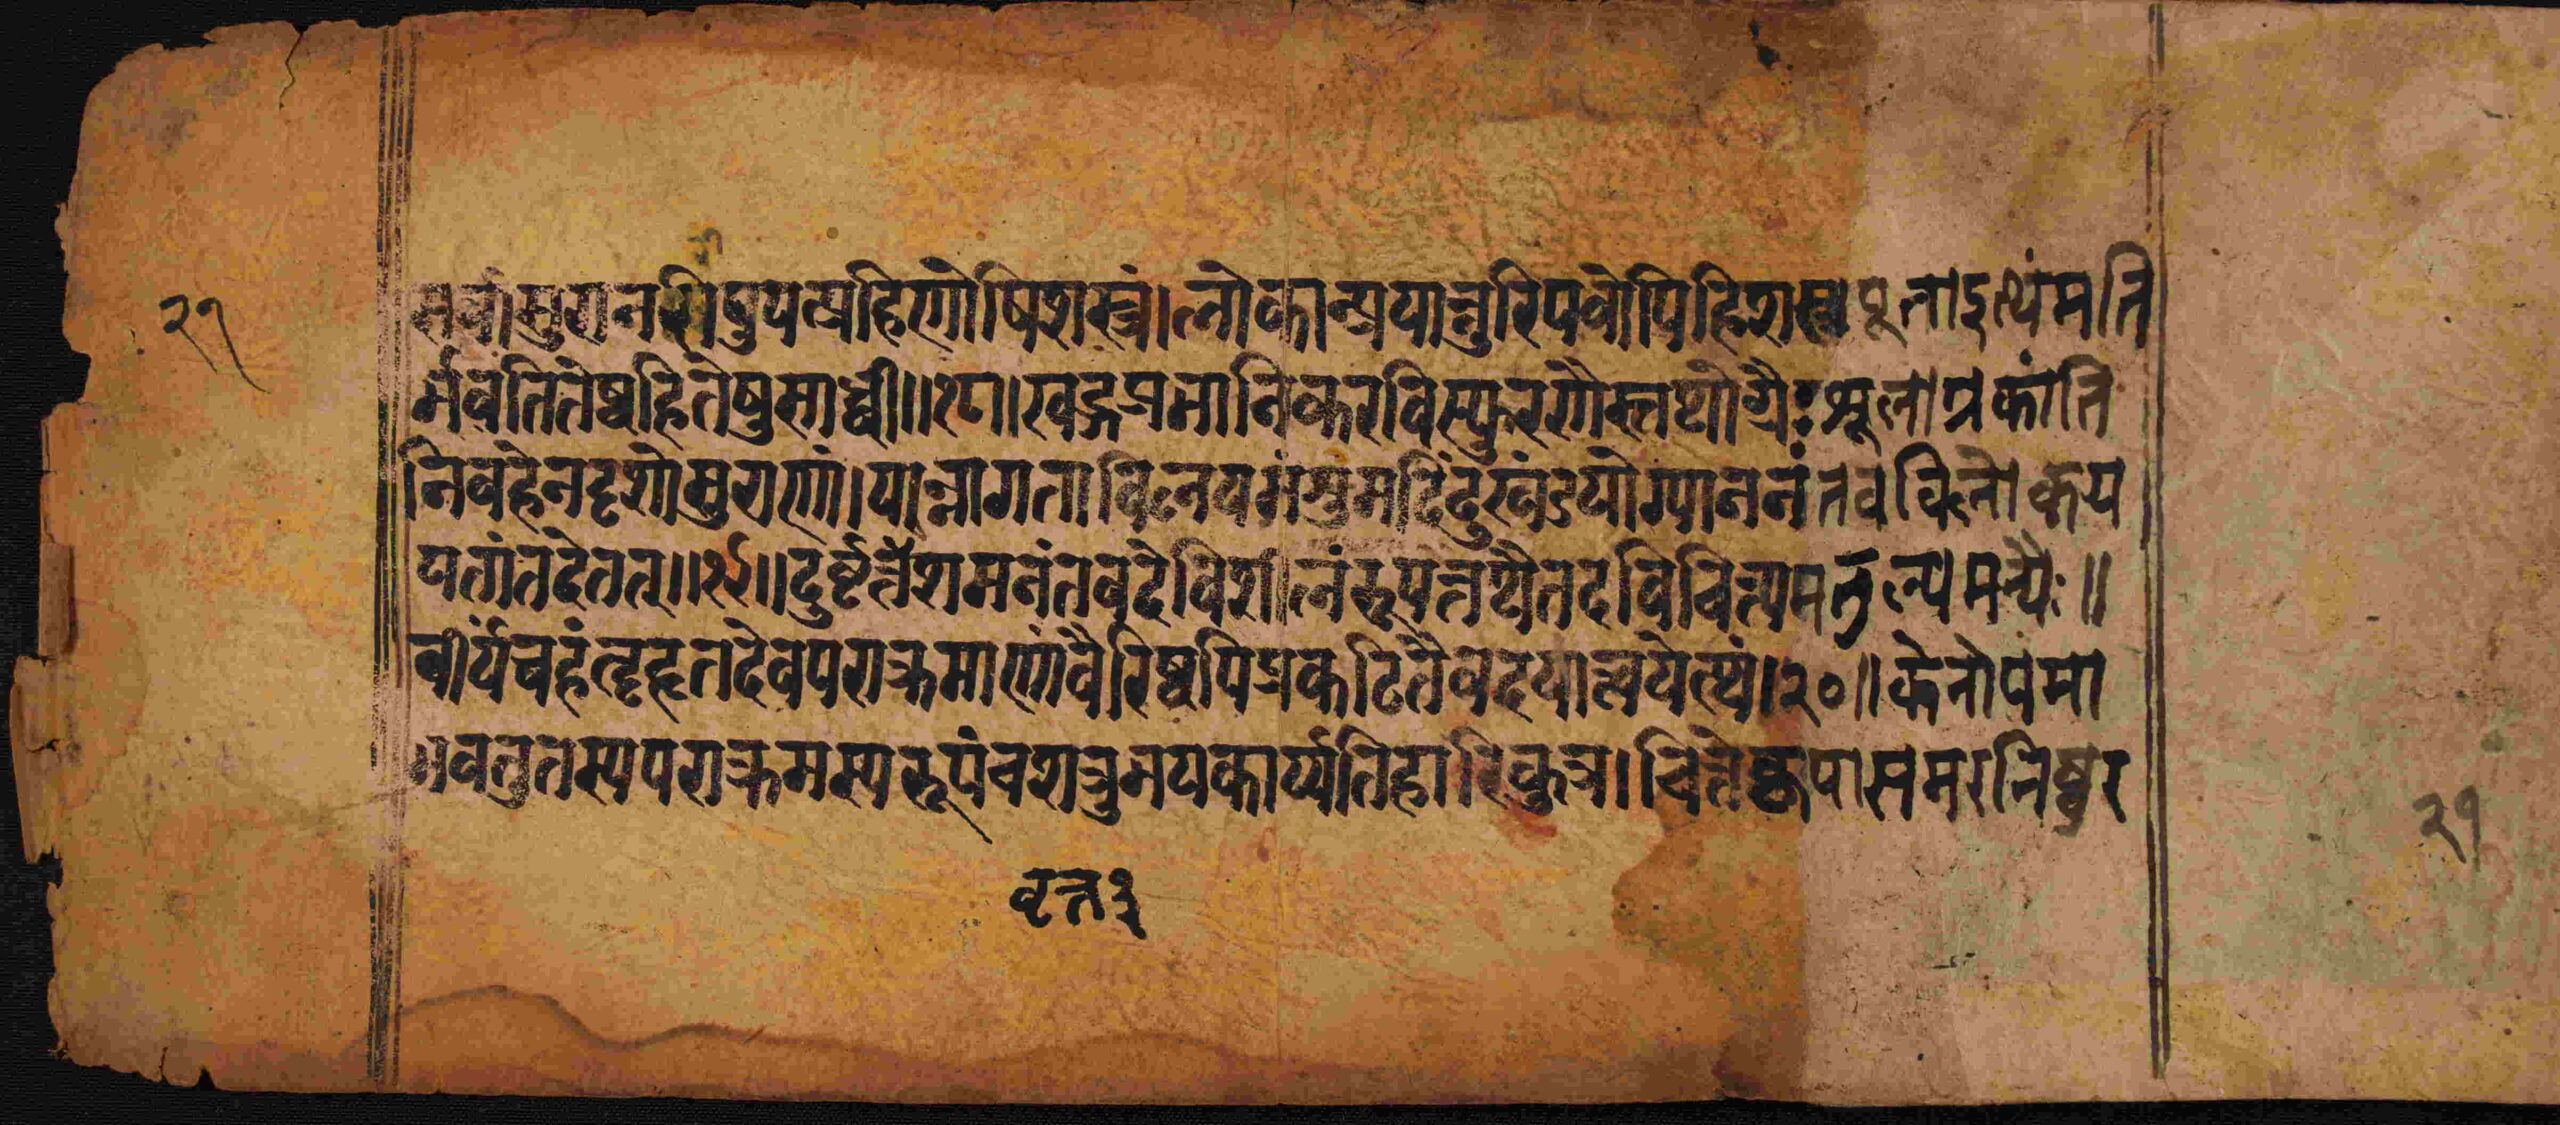 २१
सर्वासुरानरिषुयत्प्रहिणोषिशस्त्रं।लोकान्प्रयान्तुरिपवोपिहिशस्त्रपूताइत्थंमति
र्भवतितेष्वहितेषुसाध्वी॥१८॥खड्गप्रभानिकरविस्फुरणैस्तथोग्रैःशूलाग्रकांति
निवहेनदृशोसुराणां।यान्नागताविलयमंशुमदिंदुखंडयोग्याननंतवविलोकय
यतांतदेतत्॥१९॥दुर्वृत्तवृत्तशमनंतवदेविशीलंरूपंतथैतदविचिन्त्यमतुल्यमन्यैः॥
वीर्यंचहंतृहृतदेवपराक्रमाणांवैरिष्वपिप्रकटितैवदयात्वयेत्थं।२०॥केनोपमा
भवतुतस्यपराक्रमस्यरूपंचशत्रुभयकार्य्यतिहारिकुत्र।चित्तेकृपासमरनिष्ठुर
वृत्त३
२१